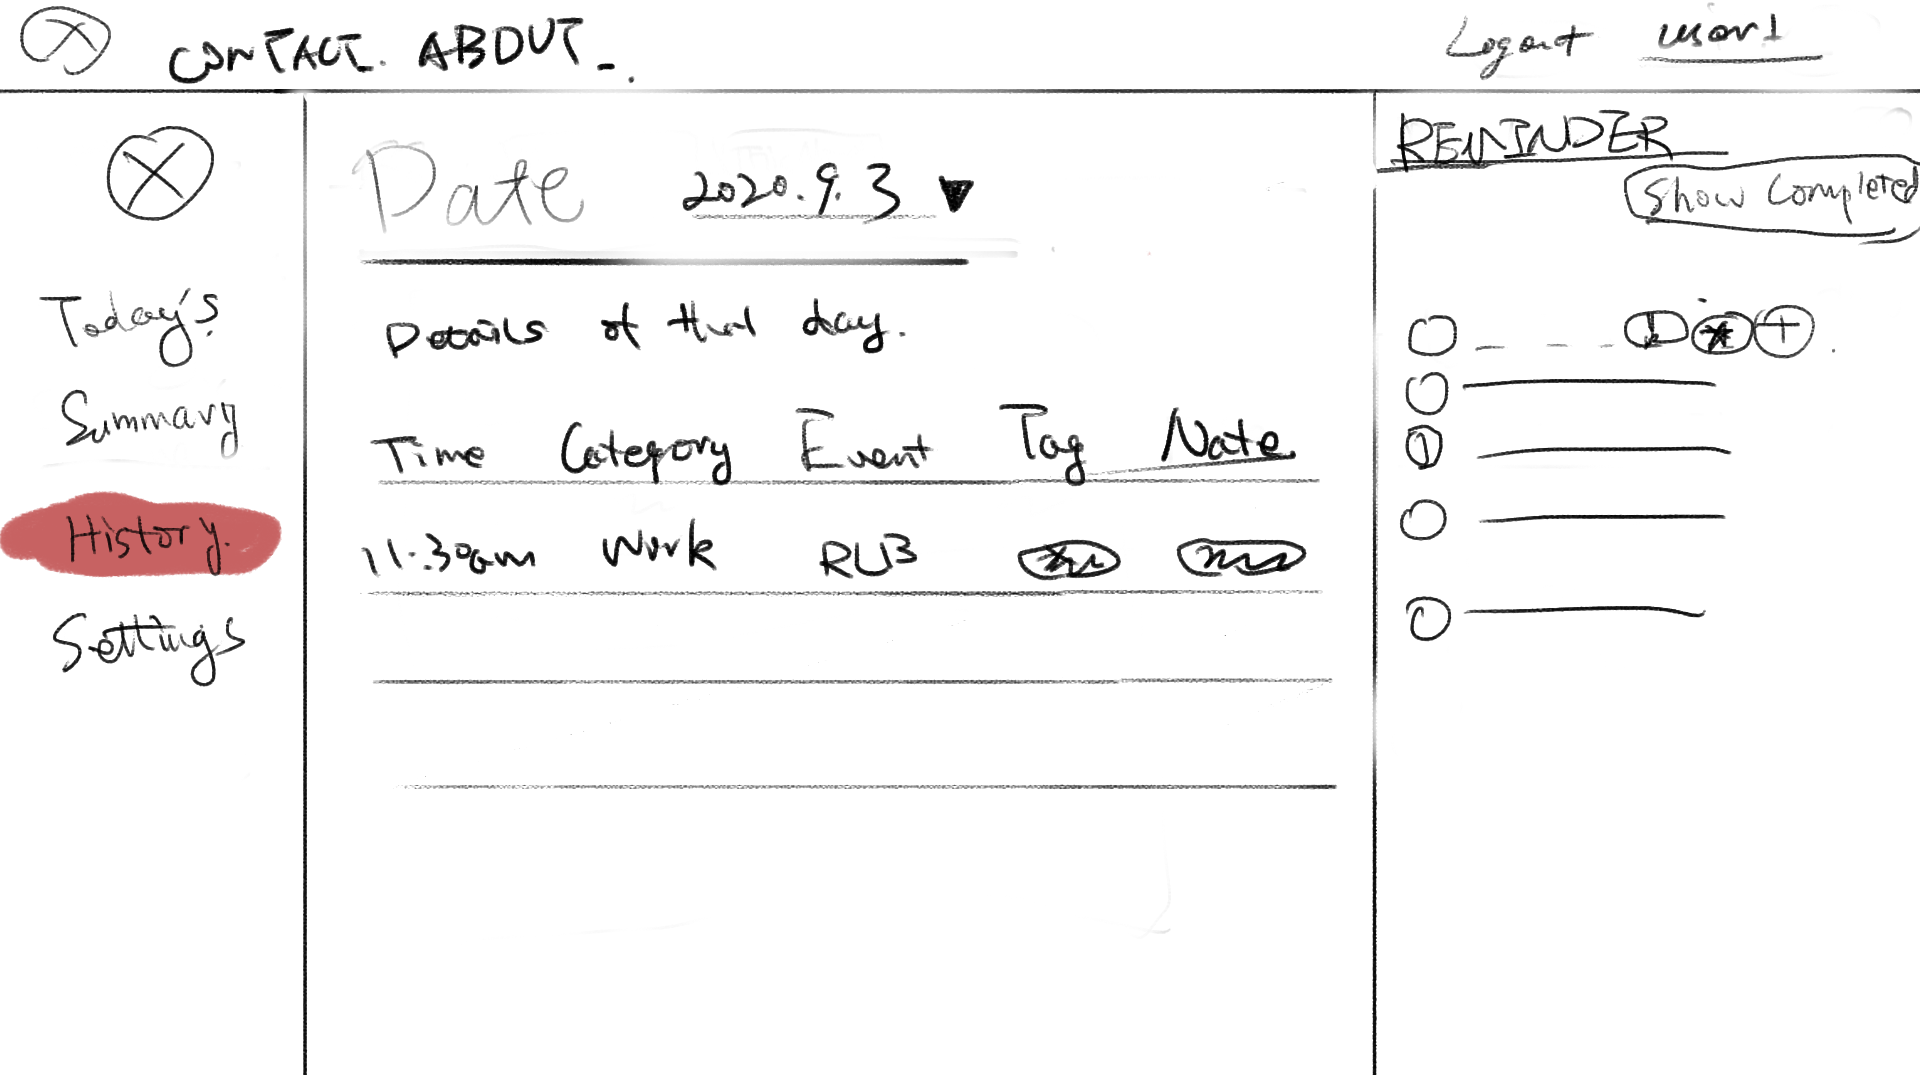 CONTACT. ABOUT
Logout user1
Today's
Summary
History.
Settings
Date 2020.9.3
Details of that day.
Time Category Event Tag Note
11:30am Work
REMINDER
Show Completed